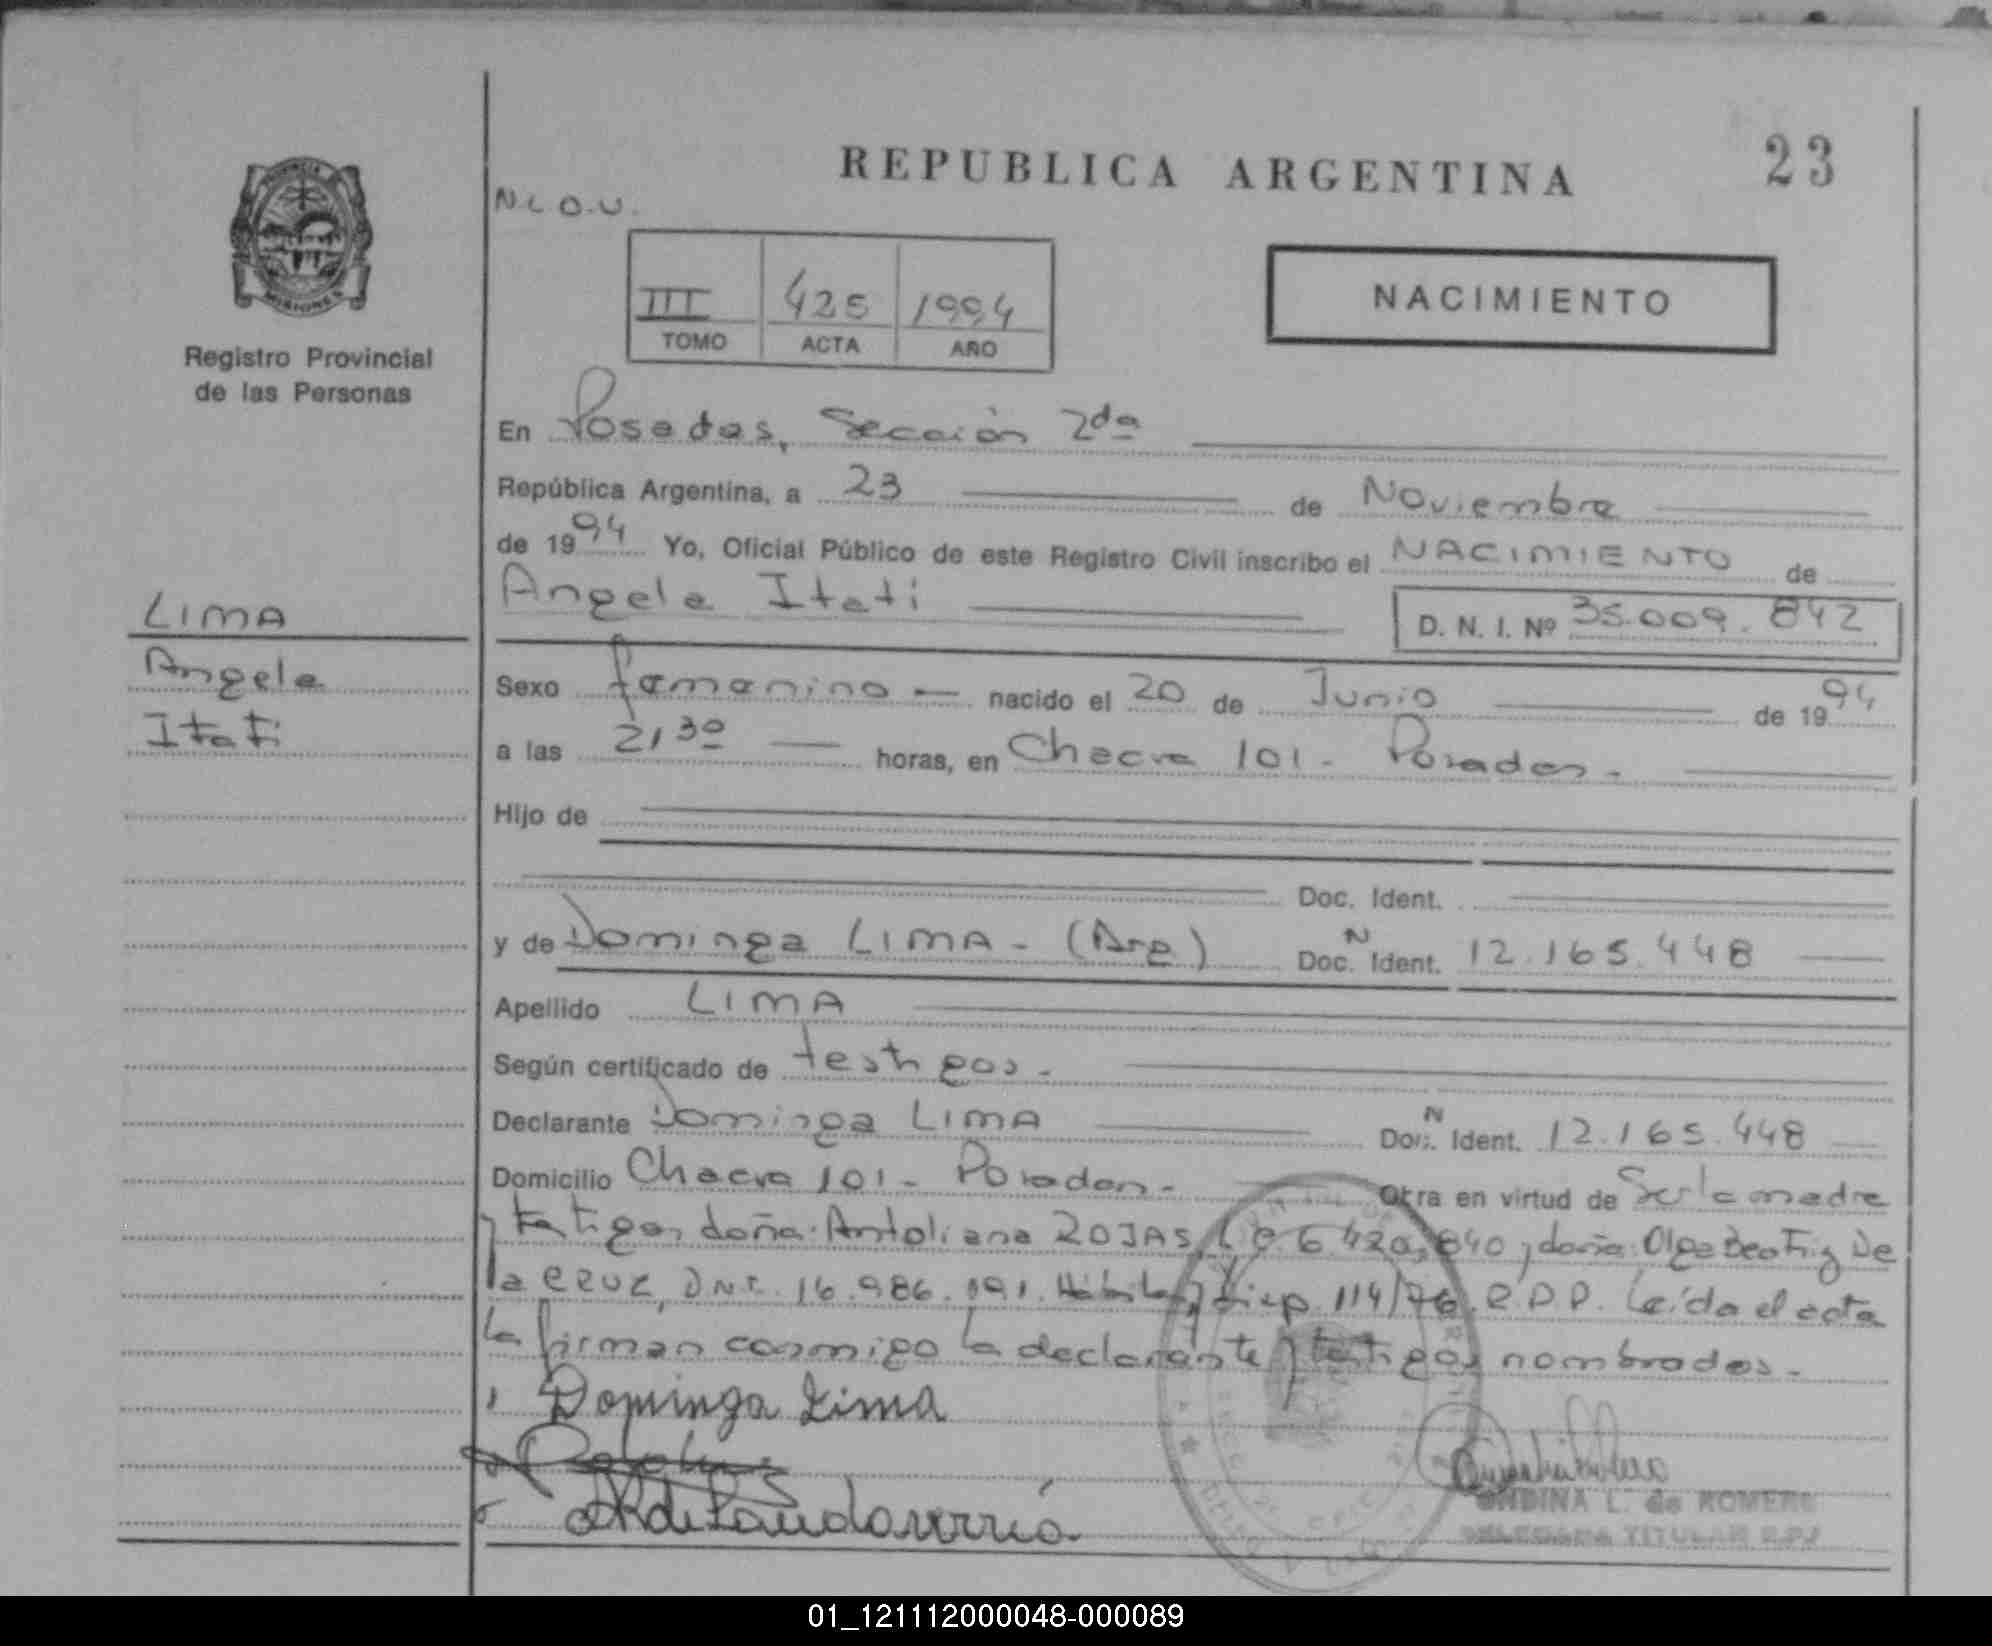 REPUBLICA ARGENTINA
23
PROVINCIA
MISIONES
Registro Provincial
de las Personas
N.L.O.U.
III 425 1994
TOMO ACTA AÑO
NACIMIENTO
En Posadas, Sección 2da
República Argentina, a 23 de Noviembre
de 1994 Yo, Oficial Público de este Registro Civil inscribo el NACIMIENTO de
Angela Itati
D. N. I. Nº 35.009.842
LIMA
Angela
Itati
Sexo femenino nacido el 20 de Junio de 1994
a las 21,30 horas, en Chacra 101 - Posadas.
Hijo de
Doc. Ident.
y de Dominga LIMA - (Arg) Doc. N Ident. 12.165.448
Apellido LIMA
Según certificado de testigos.
Declarante Dominga LIMA Doc. N Ident. 12.165.448
Domicilio Chacra 101 - Posadas - Otra en virtud de Ser la madre
y testigos doña: Antoliana ROJAS, L.C 6.420.840 y doña: Olga Beatriz De
la CRUZ, DNI. 16.986.091. Hábiles y disp. 114/76. R.P.P. Leída el acta
la firman conmigo la declarante y testigos nombrados.
Dominga Lima
ONDINA L. de ROMERO
DELEGADA TITULAR R.P.P
01_121112000048-000089